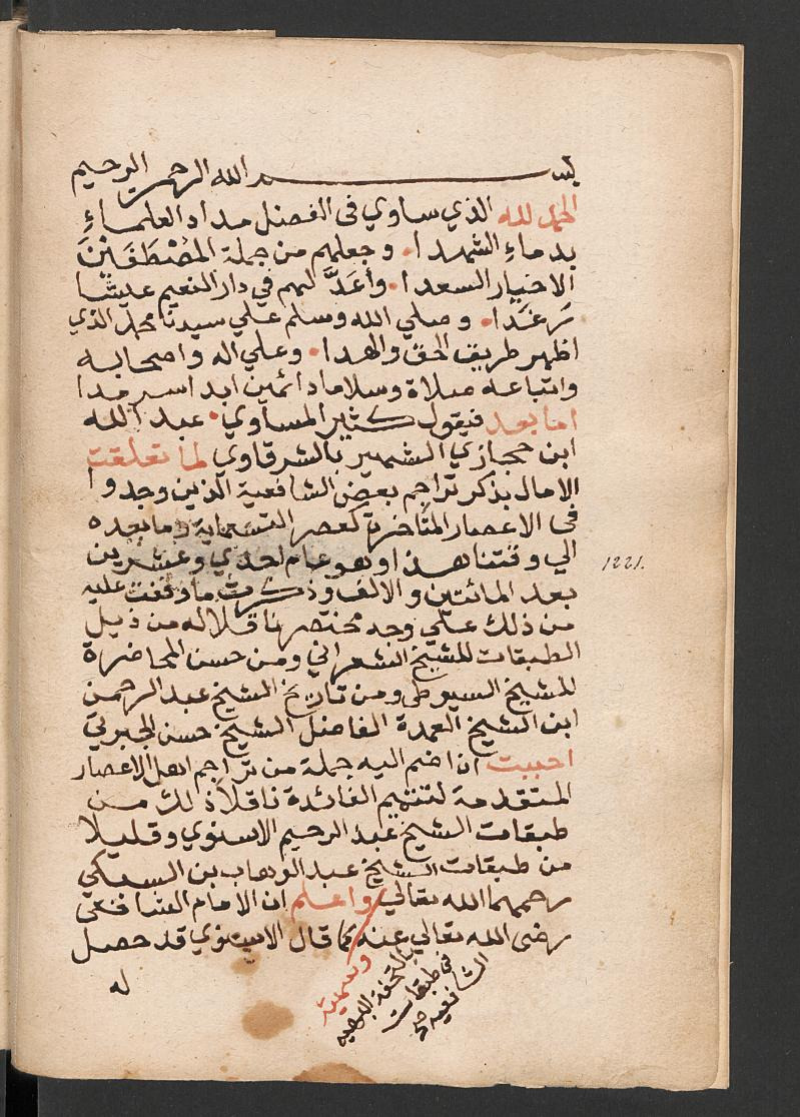 بسم الله الرحمن الرحيم
الحمد لله الذي ساوي في الفضل مداد العلماءِ
بدماءِ الشهدا. وجعلهم من جملة المُصْطَفَيْنَ
الاخيار السعدا. وأعَدَّ لهم في دار النعيم عيشًا
رَغَدا. وصلي الله وسلم علي سيدنا محمد الذي
اظهر طريق الحق والهدا. وعلي اله واصحابه
واتباعه صلاة وسلاما دائمين ابدا سرمدا
اما بعد فيقول كثير المساوي. عبد الله
ابن حجازي الشهير بالشرقاوي لما تعلقت
الامال بذكر تراجم بعض الشافعية الذين وجدوا
في الاعصار المتأخرة كعصر التسعماية وما بعده
الي وقتنا هذا وهو عام احدي وعشرين
1221.
بعد المائتين والالف وذكرت ما وقفت عليه
من ذلك علي وجه مختصر ناقلا له من ذيل
الطبقات للشيخ الشعراني ومن حسن المحاضرة
للشيخ السيوطي ومن تاريخ الشيخ عبد الرحمن
ابن الشيخ العمدة الفاضل الشيخ حسن الجبرتي
احببت ان اضم اليه جملة من تراجم اهل الاعصار
المتقدمة لتتميم الفائدة ناقلاً ذلك من
طبقات الشيخ عبد الرحيم الاسنوي وقليلا
من طبقات الشيخ عبد الوهاب بن السبكي
رحمهما الله تعالي واعلم ان الامام الشافعي
رضى الله تعالي عنه كما قال الاسنوي قد حصل
له
وسميته
بالتحفة البهيه
في طبقات
الشافعيه صح